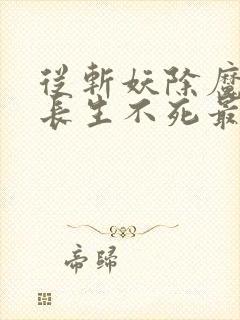 從斬妖除魔
長生不死最
帝歸